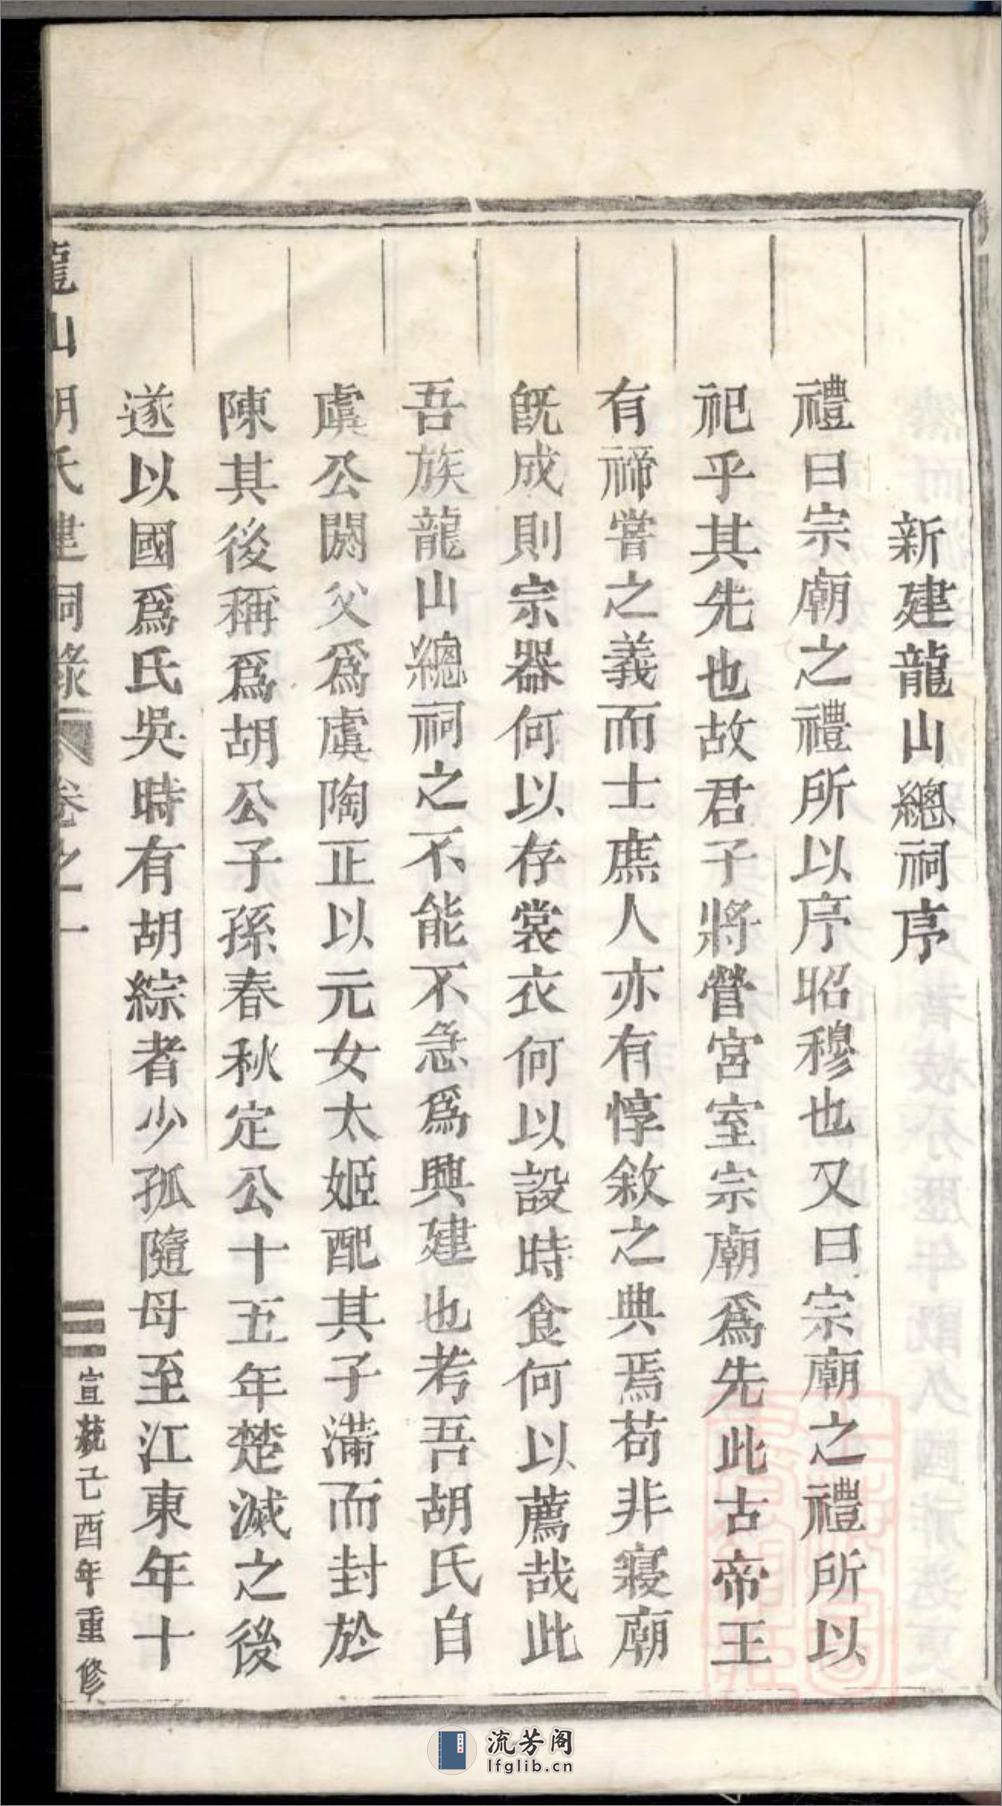 新建龍山總祠序
禮曰宗廟之禮所以序昭穆也又曰宗廟之禮所以
祀乎其先也故君子將營宮室宗廟爲先此古帝王
有禘嘗之義而士庶人亦有惇敘之典焉苟非寢廟
旣成則宗器何以存裳衣何以設時食何以薦哉此
吾族龍山總祠之不能不急爲興建也考吾胡氏自
虞公閼父爲虞陶正以元女太姬配其子滿而封於
陳其後稱爲胡公子孫春秋定公十五年楚滅之後
遂以國爲氏吳時有胡綜者少孤隨母至江東年十
龍山胡氏建祠錄 卷之一
宣統己酉年重修
流芳阁
lfglib.cn